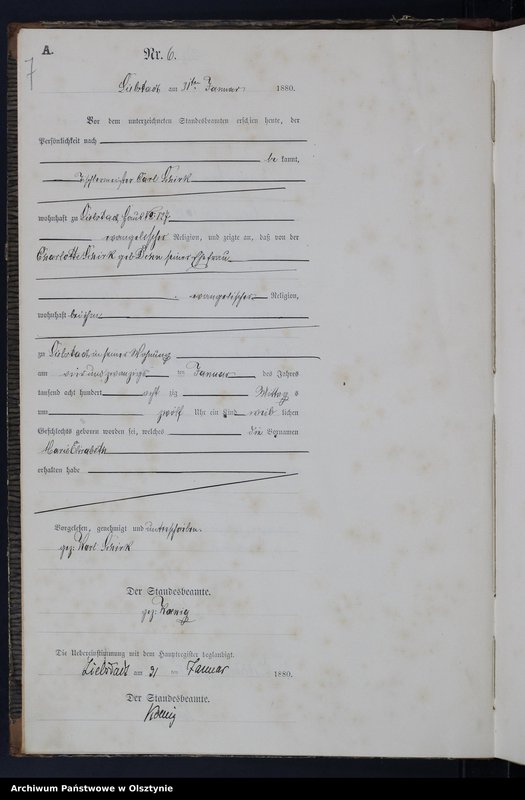 A.
Nr. 6.
7
Liebstadt am 31ten Januar 1880.
Vor dem unterzeichneten Standesbeamten erschien heute, der
Persönlichkeit nach
be kannt,
Tischlermeister Carl
wohnhaft zu Liebstadt Haus No: 127
evangelischer Religion, und zeigte an, daß von der
Charlotte geb. seiner Ehefrau
evangelischer Religion,
wohnhaft bei ihm
zu Liebstadt in seiner Wohnung
am vier und zwanzigs ten Januar des Jahres
tausend acht hundert acht zig Mittag s
um zwölf Uhr ein Kind weib lichen
Geschlechts geboren worden sei, welches die Vornamen
Marie Elisabeth
erhalten habe
Vorgelesen, genehmigt und unterschrieben.
gez: Karl
Der Standesbeamte.
gez: Koenig
Die Uebereinstimmung mit dem Hauptregister beglaubigt.
Liebstadt am 31 ten Januar 1880.
Der Standesbeamte.
Koenig
Archiwum Państwowe w Olsztynie